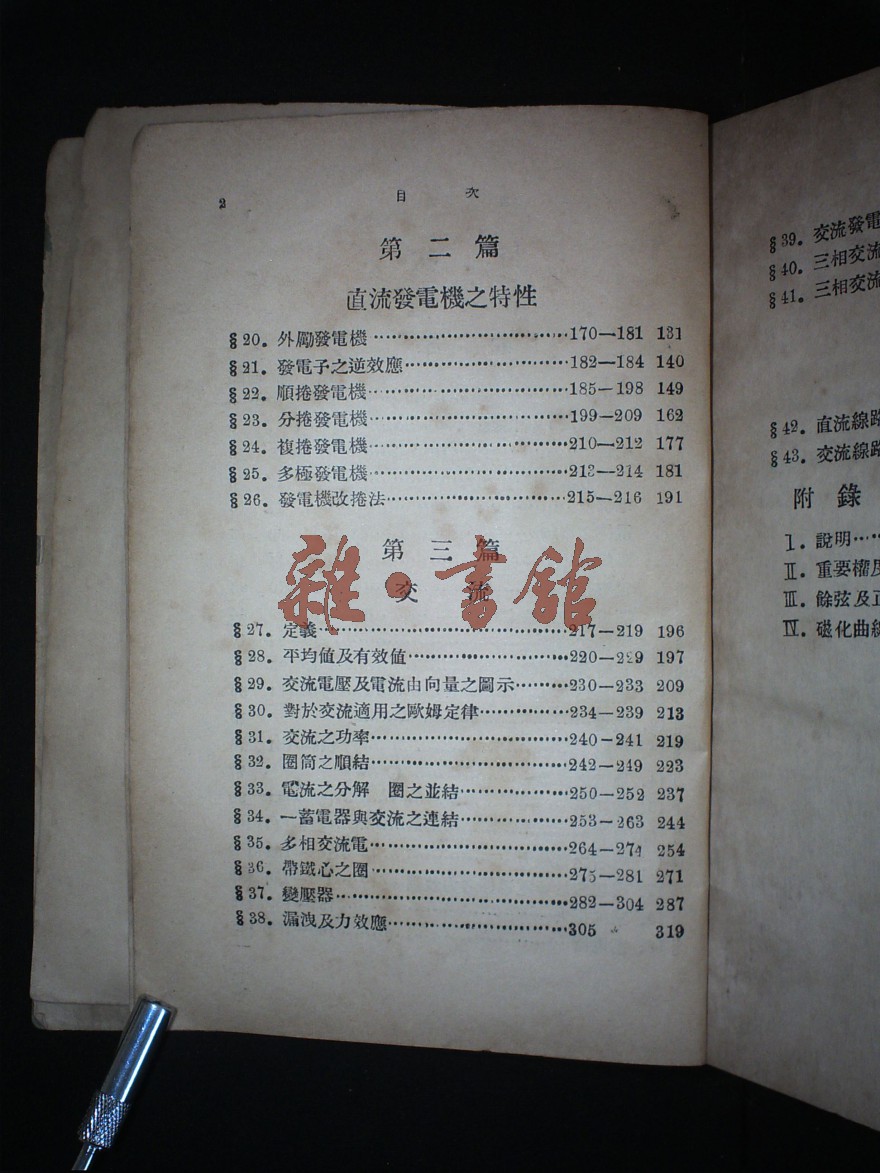 2 目次
第二篇
直流發電機之特性
§20. 外勵發電機……170—181 131
§21. 發電子之逆效應……182—184 140
§22. 順捲發電機……185—198 149
§23. 分捲發電機……199—209 162
§24. 複捲發電機……210—212 177
§25. 多極發電機……213—214 181
§26. 發電機改捲法……215—216 191
第三篇
交流
雜·書館
§27. 定義……217—219 196
§28. 平均値及有效値……220—229 197
§29. 交流電壓及電流由向量之圖示……230—233 209
§30. 對於交流適用之歐姆定律……234—239 213
§31. 交流之功率……240—241 219
§32. 圈筒之順結……242—249 223
§33. 電流之分解 圈之並結……250—252 237
§34. 一蓄電器與交流之連結……253—263 244
§35. 多相交流電……264—274 254
§36. 帶鐵心之圈……275—281 271
§37. 變壓器……282—304 287
§38. 漏洩及力效應……305 319
§39. 交流發電
§40. 三相交流
§41. 三相交流
§42. 直流線路
§43. 交流線路
附錄
I. 說明……
II. 重要權度
III. 餘弦及正
IV. 磁化曲線